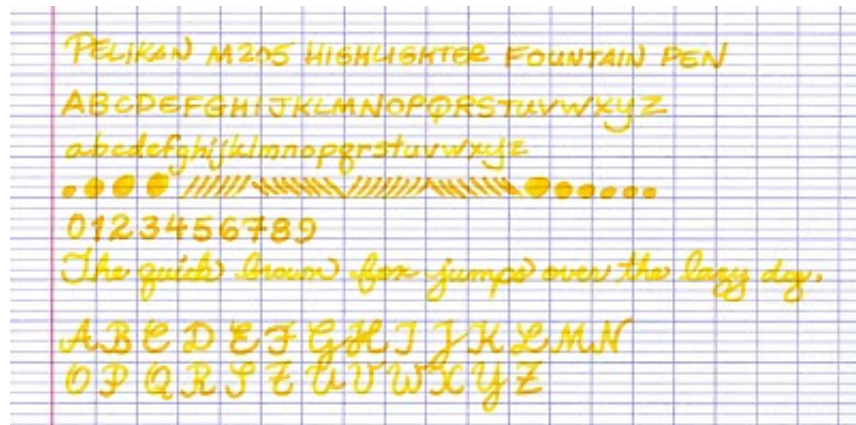 PELIKAN M205 HIGHLIGHTER FOUNTAIN PEN
ABCDEFGHIJKLMNOPQRSTUVWXYZ
abcdefghijklmnopqrstuvwxyz
0123456789
The quick brown fox jumps over the lazy dog.
ABCDEFGHIJKLMN
OPQRSTUVWXYZ